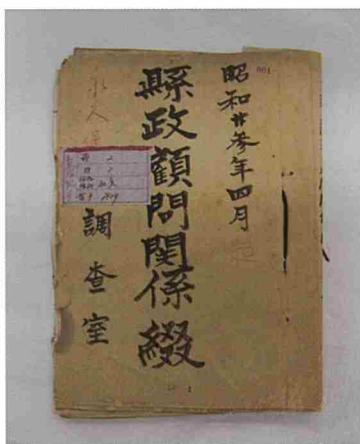 昭和廿参年四月
起
縣政顧問関係綴
調査室
永久